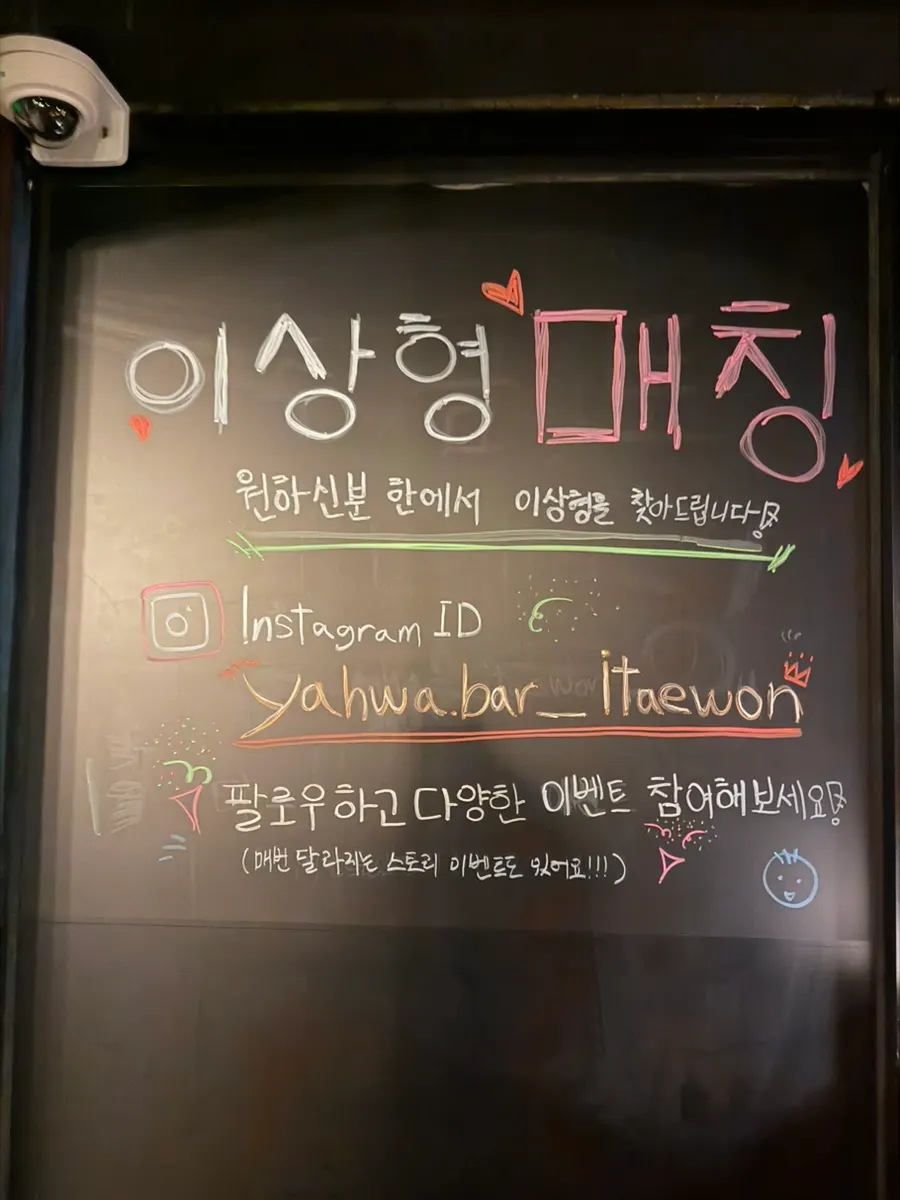 이상형 매칭
원하신분 한에서 이상형을 찾아드립니다!
Instagram ID
yahwa.bar_itaewon
팔로우하고 다양한 이벤트 참여해보세요!
(매번 달라지는 스토리 이벤트도 있어요!!!)